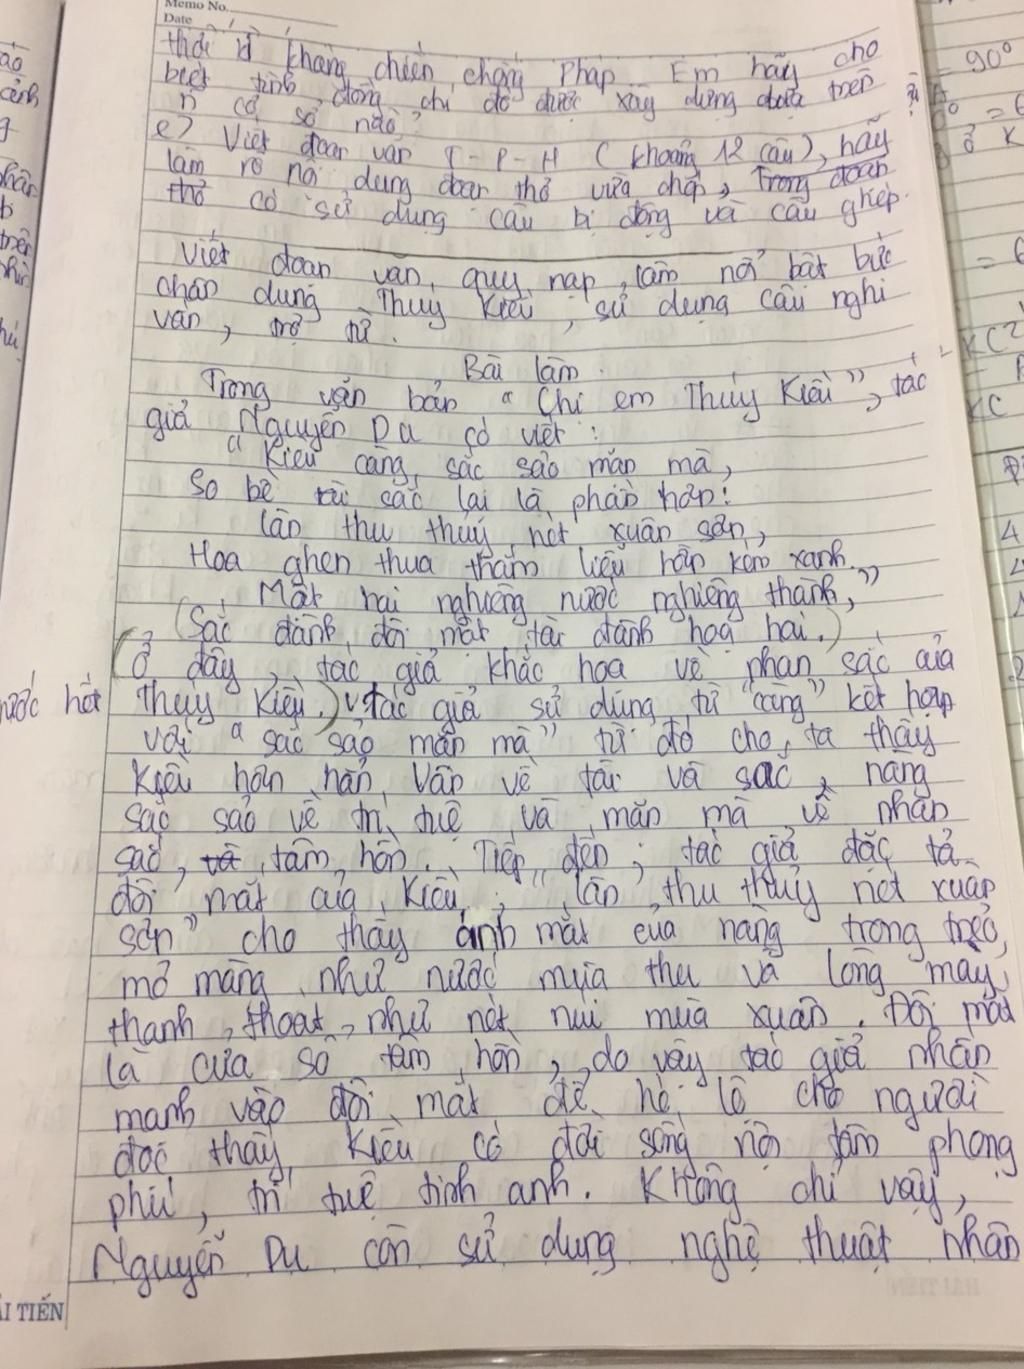 Memo No.
Date
thời kì kháng chiến chống Pháp. Em hãy cho
biết tình đồng chí đó được xây dựng dựa trên
n cơ sở nào?
e) Viết đoạn văn T-P-H (khoảng 12 câu), hãy
làm rõ nội dung đoạn thơ vừa chép, Trong đoạn
thơ có sử dụng câu bị động và câu ghép.
Viết đoạn văn quy nạp, làm nổi bật bức
chân dung Thúy Kiều, sử dụng câu nghi
vấn, trợ từ.
Bài làm
Trong văn bản "Chị em Thúy Kiều", tác
giả Nguyễn Du có viết:
"Kiều càng sắc sảo mặn mà,
So bề tài sắc lại là phần hơn:
Làn thu thuỷ nét xuân sơn,
Hoa ghen thua thắm liễu hờn kém xanh.
Một hai nghiêng nước nghiêng thành,"
(Sắc đành đòi một tài đành hoạ hai.)
(Ở đây, tác giả khắc hoạ về nhan sắc của
Thúy Kiều.) tác giả sử dụng từ "càng" kết hợp
với "sắc sảo mặn mà" từ đó cho ta thấy
Kiều hơn hẳn Vân về tài và sắc, nàng
sắc sảo về trí tuệ và mặn mà về nhan
sắc, tâm hồn. Tiếp đến, tác giả đặc tả
đôi mắt của Kiều: "làn thu thuỷ nét xuân
sơn" cho thấy ánh mắt của nàng trong trẻo,
mơ màng như nước mùa thu và lông mày
thanh thoát như nét núi mùa xuân. Đôi mắt
là cửa sổ tâm hồn, do vậy tác giả nhấn
mạnh vào đôi mắt để hé lộ cho người
đọc thấy Kiều có đời sống nội tâm phong
phú, trí tuệ tinh anh. Không chỉ vậy,
Nguyễn Du còn sử dụng nghệ thuật nhân
ẢI TIẾN
nước hết
90°
KC